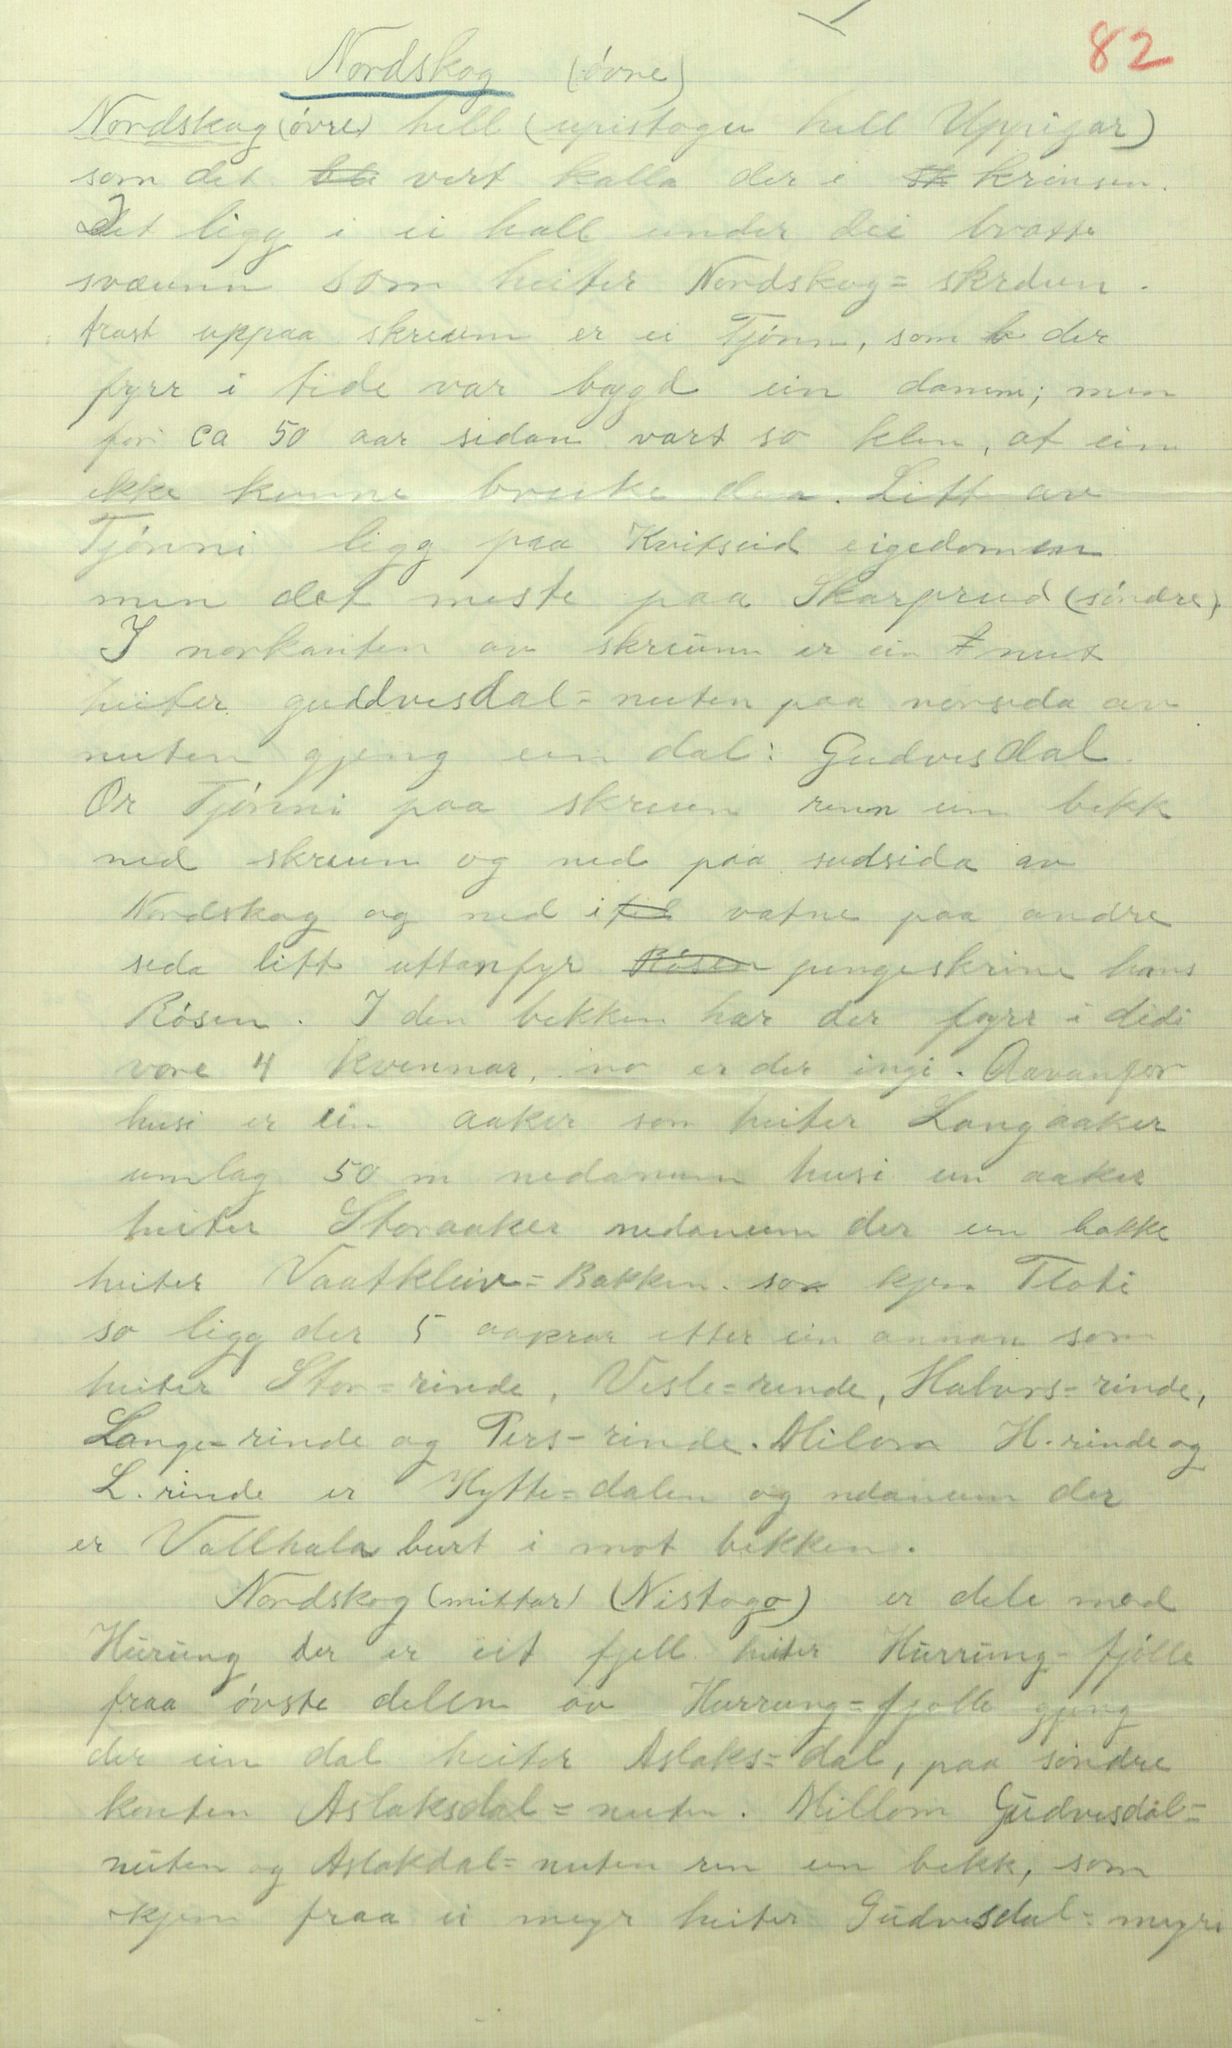 82
Nordskog (óvre)
Nordskog (óvre) hell (upistogu hell Uppigar)
som det vert kalla der i krinsen.
Det ligg i ei hall under dei bratte
svæunn som heiter Nordskog=skrdun.
trast uppaa skreunn er ei Tjónn, som der
fyrr i tide var bygd ein damm; men
for ca 50 aar sidan vart so klen, at ein
ikke kunne bruke dæn. Litt av
Tjónni ligg paa Kvitseid eigedomen
men det meste paa Skarprud (sóndre).
I norkanten av skreunn er ein nut
heiter guddvesdal=nuten paa norsida av
nuten gjeng ein dal: Gudvesdal.
Or Tjónni paa skreun renn ein bekk
ned skreun og ned paa sudsida av
Nordskog og ned i vatne paa andre
sida litt uttanfyr pengeskrine hans
Rósen. I den bekken har der fyrr i didi
vore 4 kvennar, no er der ingi. Aavanfor
husi er ein aaker som heiter Langaaker
umlag 50 m nedanum husi ein aaker
heiter Storaaker nedanum der ein bakke
heiter Vaatkleiv=Bakken. so kjem Floti
so ligg der 5 aakrar etter ein annan som
heiter Stor=rinde, Vesle=rinde, Halvors=rinde,
Lange=rinde og Pers=rinde. Milom H.rinde og
L.rinde er Hytte=dalen og nedanum der
er Vallhala burt i mot bekken.
Nordskog (mittar) (Nistogo) er dele med
Hurung der er eit fjell heiter Hurrung=fjólle
fraa óvste delen av Hurrung=fjolle gjeng
der ein dal heiter Aslaks=dal, paa sóndre
kanten Aslaksdal=nuten. Millom Gudvesdal=
nuten og Aslakdal=nuten ren ein bekk, som
kjem fraa ei myr heiter Gudvesdal=myri